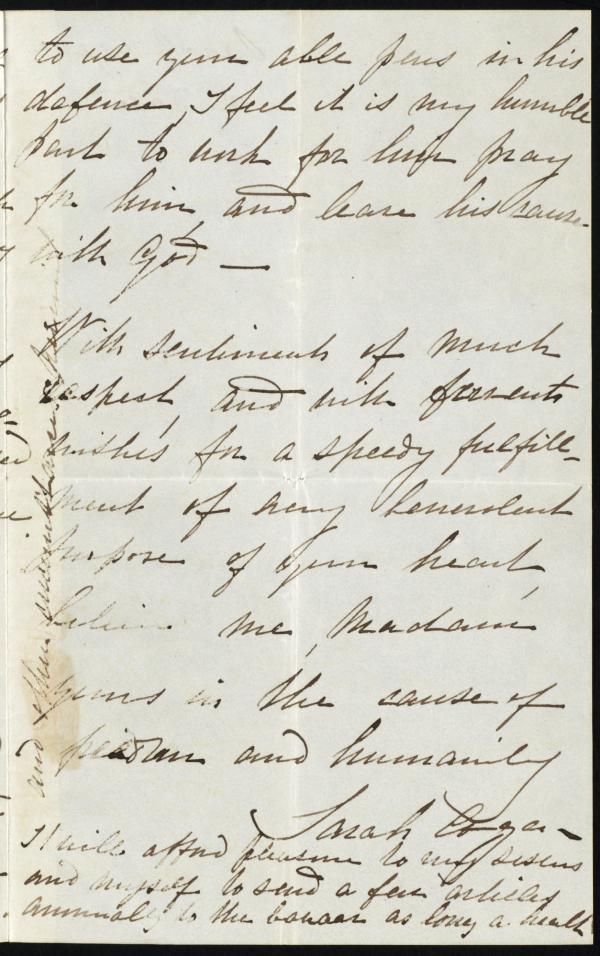 to use your able pens in his
defence, I feel it is my humble
part to work for him pray
for him, and leave his cause
with God —
With sentiments of much
respect, and with fervent
wishes for a speedy fulfill-
ment of every benevolent
purpose of your heart,
believe me, Madam
yours in the cause of
freedom and humanity
Sarah
It will afford pleasure to my sisters
and myself to send a few articles
annually to the bazaar as long as health
and other